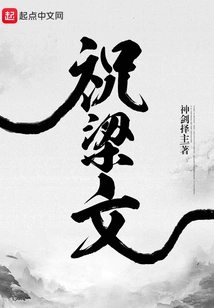 起点
起点中文网
祝梁文
神剑择主著